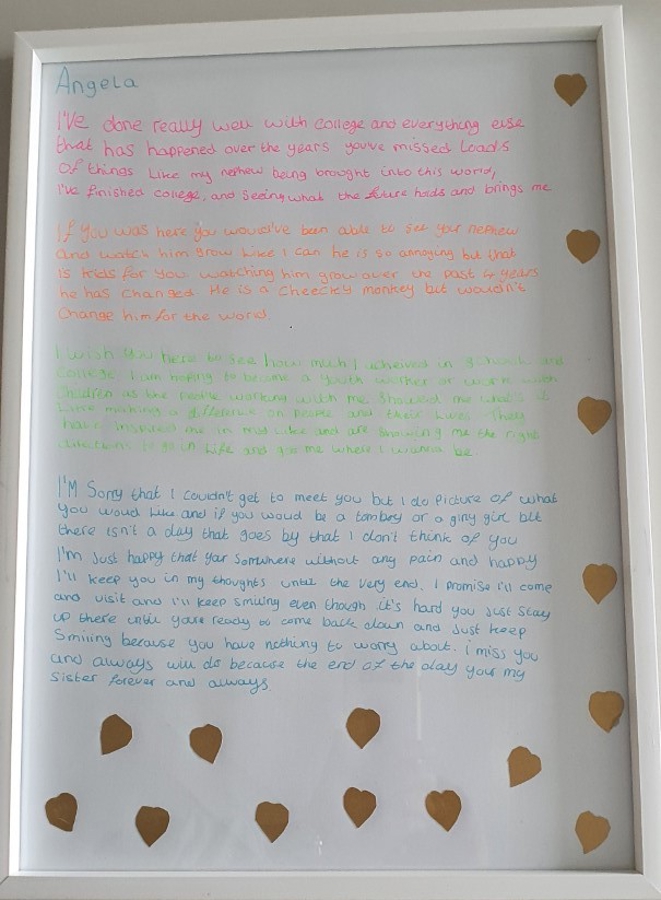 Angela
I've done really well with college and everything else
that has happened over the years youve missed loads
of things like my nephew being brought into this world,
I've finished college, and seeing what the future holds and brings me
If you was here you would've been able to see your nephew
and watch him grow like I can he is so annoying but that
is kids for you. watching him grow over the past 4 years
he has changed. He is a cheecky monkey but wouldn't
change him for the world.
I wish you here to see how much I acheived in school and
college. I am hoping to become a youth worker or work with
children as the people working with me showed me what's it
like making a difference on people and their lives. They
have inspired me in my like and are showing me the right
directions to go in life and got me where I wanna be.
I'M Sorry that I couldn't get to meet you but I do picture of what
you woud like and if you woud be a tomboy or a girly girl but
there isn't a day that goes by that I don't think of you
I'm just happy that your somwhere without any pain and happy
I'll keep you in my thoughts until the very end. I promise I'll come
and visit and I'll keep smiling even though it's hard you just stay
up there until youre ready to come back down and just keep
smiling because you have nothing to worry about. i miss you
and always will do because the end of the day your my
sister forever and always